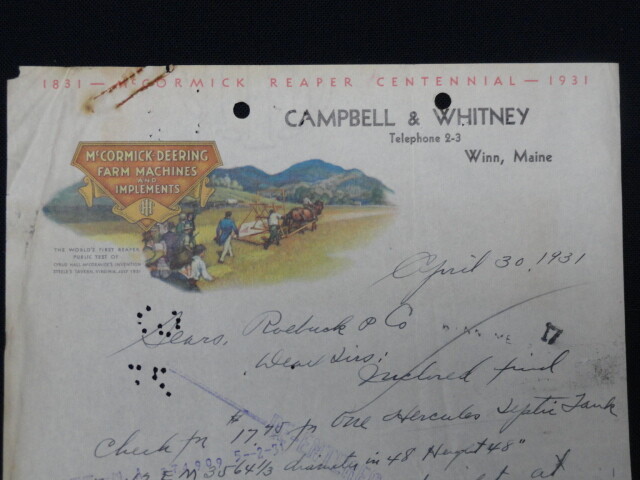 1831 — McCORMICK REAPER CENTENNIAL — 1931
CAMPBELL & WHITNEY
Telephone 2-3
Winn, Maine
McCORMICK-DEERING
FARM MACHINES
AND
IMPLEMENTS
THE WORLD'S FIRST REAPER
PUBLIC TEST OF
CYRUS HALL McCORMICK'S INVENTION
STEELE'S TAVERN, VIRGINIA, JULY 1831
April 30, 1931
Sears, Roebuck & Co
Dear Sirs:
Inclosed find
Check for $17.45 for One Hercules Septic Tank
in 48 Height 48"
at